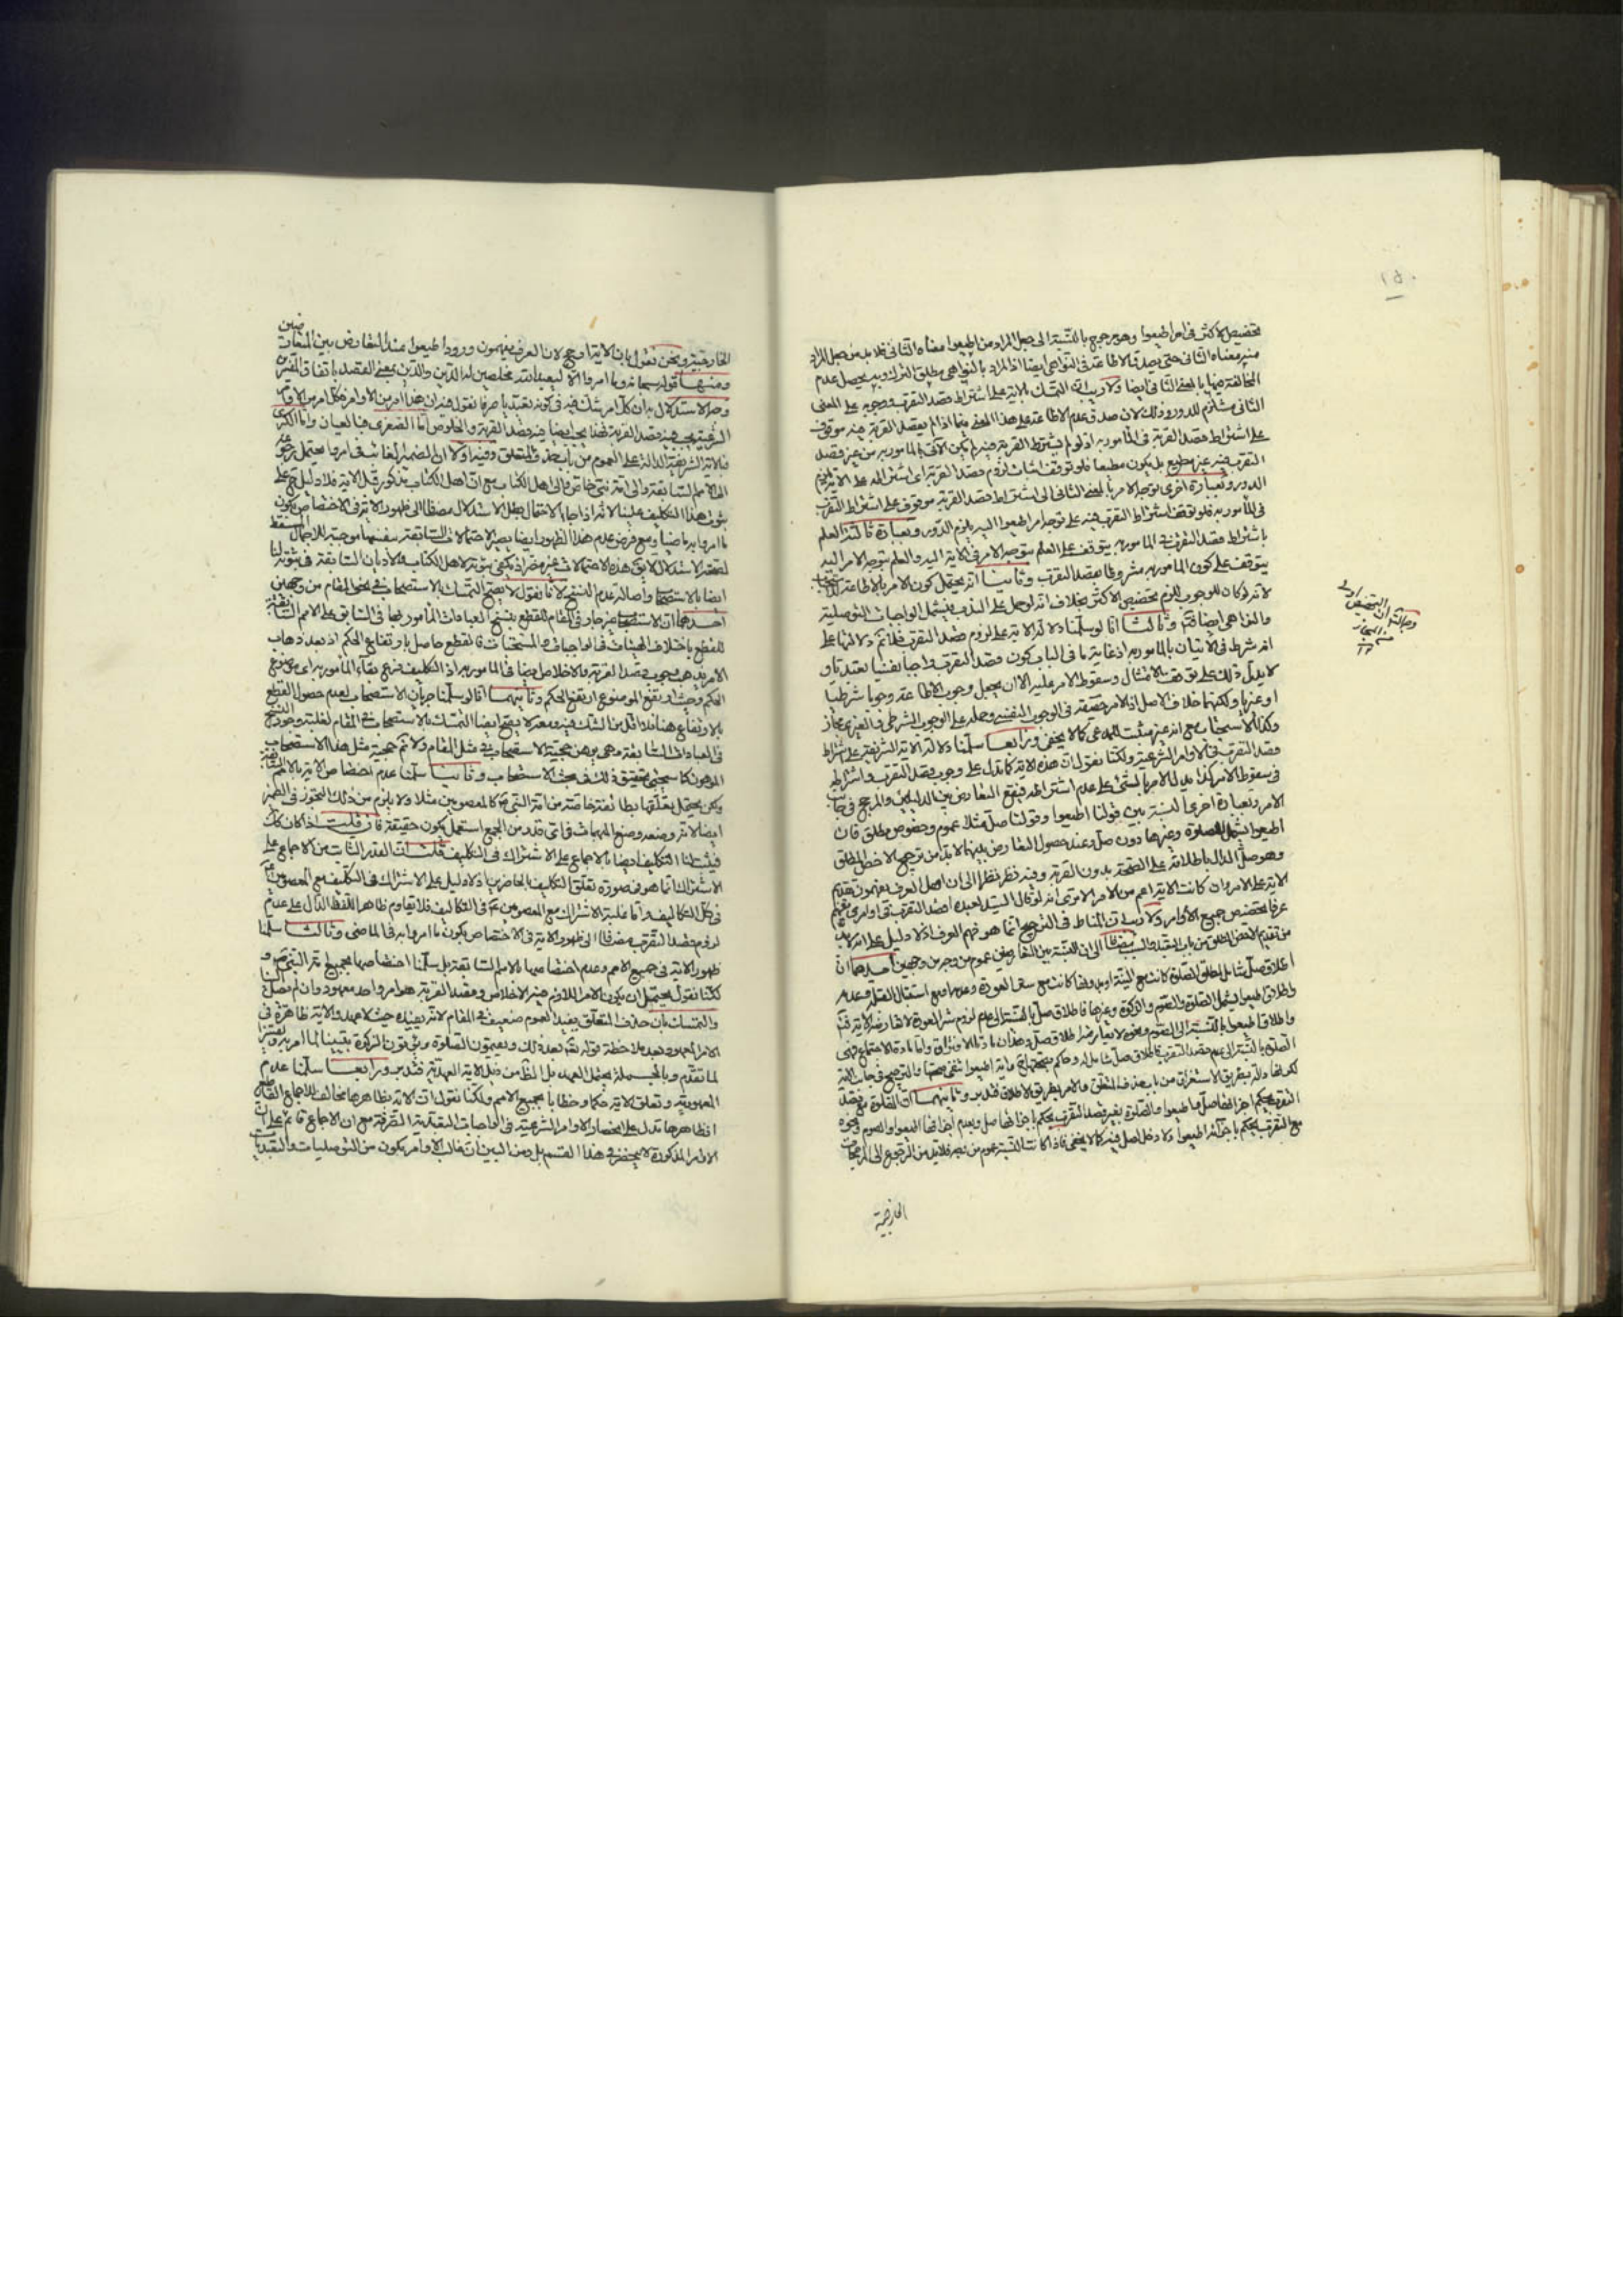 ١٥٠
تخصيص الاكثر في امر اطيعوا وهو مرجوح بالنسبة الى حمل المراد من اطيعوا معناه الثاني فلا بد من حمل المراد
منه معناه الثاني حتى يصدق الاطاعة في النواهي ايضا اذ المراد بالنواهي مطلق الترك وبه يحصل عدم
المخالفة فيها بالمعنى الثاني ايضا ولا ريب ان التمسك بالاية على اشتراط قصد التقرب ووجوبه على المعنى
الثاني مستلزم للدور وذلك لان صدق عدم الاطاعة على هذا المعنى فيما اذا لم يقصد القربة فيه موقوف
على اشتراط قصد القربة في المأمور به اذ لو لم يشترط القربة فيه لم يكن الاتي بالمأمور به من غير قصد
التقرب فيه غير مطيع بل يكون مطيعا فلو توقف اثبات لزوم قصد القربة اي اشتراطه على الاية لزم
الدور وبعبارة اخرى توجه الامر بالمعنى الثاني الى اشتراط قصد القربة موقوف على اشتراط التقرب
في المأمور به فلو توقف اشتراط التقرب فيه على توجه امر اطيعوا اليه يلزم الدور وبعبارة ثالثة العلم
باشتراط قصد التقرب في المأمور به يتوقف على العلم بتوجه الامر في الاية اليه والعلم بتوجه الامر اليه
يتوقف على كون المأمور به مشروطا بقصد التقرب وثانيا انه يحتمل كون الامر بالاطاعة للاستحباب
لانه لو كان للوجوب للزم تخصيص الاكثر بخلاف انه لو حمل على الندب فيشمل الواجبات التوصلية
والنواهي ايضا فتم وثالثا انا لو سلمنا دلالة الاية على لزوم قصد التقرب فلا نم دلالتها على
انه شرط في الاتيان بالمأمور به اذ غاية ما في الباب كون قصد التقرب واجبا نفسيا تعبديا و
لا يدل ذلك على توقف الامتثال وسقوط الامر عليه الا ان يجعل وجوب الاطاعة وجوبا شرطيا
او غيريا ولكنهما خلاف الاصل اذ الامر حقيقة في الوجوب النفسي وحمله على الوجوب الشرطي والغيري مجاز
وكذا الاستحباب مع انه غير مثبت للمدعى كما لا يخفى ورابعا سلمنا دلالة الاية الشريفة على اشتراط
قصد التقرب في الاوامر الشرعية ولكنا نقول ان هذه الاية كما تدل على وجوب قصد التقرب واشتراطه
في سقوط الامر كذا يدل الامر بالشيء على عدم اشتراطه فيقع التعارض بين الدليلين والمرجح في جانب
الامر وبعبارة اخرى النسبة بين قولنا اطيعوا وقولنا صل مثلا عموم وخصوص مطلق فان
اطيعوا يشمل الصلوة وغيرها دون صل وعند حصول التعارض بينهما لا بد من ترجيح الاخص المطلق
وهو صل الدال باطلاقه على الصحة بدون القربة وفيه نظر نظرا الى ان اهل العرف يفهمون تقديم
الاية على الامر وان كانت الاية اعم من الامر الا ترى انه لو قال السيد لعبده اقصد التقرب في اوامري يفهم
عرفا تخصيص جميع الأوامر ولا ريب ان المناط في الترجيح انما هو فهم العرف اذ لا دليل على انه لا بد
من تقديم الاخص المطلق من باب التعبد والسببية مضافا الى ان النسبة بين المتعارضين عموم من وجه من وجهين احدهما ان
اطلاق صل شامل لمطلق الصلوة كانت مع النية او بدونها كانت مع ستر العورة وعدمها ومع استقبال القبلة وعدمه
واطلاق اطيعوا يشمل الصلوة والصوم والزكوة وغيرها فاطلاق صل بالنسبة الى عدم لزوم ستر العورة لا تعارضه الاية
واطلاق اطيعوا بالنسبة الى الصوم ونحوه لا يعارضه اطلاق صل وهذان مادتا الافتراق واما مادة الاجتماع فهي
الصلوة بالنسبة الى عدم قصد التقرب
التقرب يحكم
مع التقرب يحكم
الخارجية
وجه النظر ان التخصيص اولى
من المجاز
منه
الخارجية ونحن نقول بان الاية ارجح لان العرف يفهمون ورود اطيعوا عند التعارض بين المتعارضين
ومنها قوله سبحانه وما امروا الا ليعبدوا الله مخلصين له الدين والدين بمعنى القصد باتفاق المفسرين
وجه الاستدلال به ان كل امر شك فيه في كونه تعبديا صرفا نقول فيه ان هذا امر من الاوامر وكل امر من الاوامر
الشرعية يجب فيه قصد القربة فهذا يجب ايضا فيه قصد القربة والخلوص اما الصغرى فبالعيان واما الكبرى
فبالاية الشريفة الدالة على العموم من باب حذف المتعلق وفيه اولا ان الضمير الغائب في امروا يحتمل رجوعه
الى الامم السابقة والى امة نبي خاص والى اهل الكتاب مع ان اهل الكتاب مذكور قبل الاية فلا دليل ح على
ثبوت هذا التكليف علينا لانه اذا جاء الاحتمال بطل الاستدلال مضافا الى ظهور الاية في الاختصاص بكون
ما امروا به ماضيا ومع فرض عدم هذا الظهور ايضا يصير الاحتمالات السابقة سببا موجبة للاجمال المسقط
لصحة الاستدلال لا يق هذه الاحتمالات غير مضر اذ يكفي ثبوته لاهل الكتاب والاديان السابقة في ثبوته لنا
ايضا بالاستصحاب واصالة عدم النسخ لانا نقول لا يصح التمسك بالاستصحاب في نحو المقام من وجهين
احدهما ان الاستصحاب غير جار في المقام للقطع بنسخ العبادات المأمور بها في السابق على الامم السابقة
للقطع باختلاف الهيئات في الواجبات والمستحبات فالقطع حاصل بارتفاع الحكم اذ بعد ذهاب
الامر يذهب وجوب قصد القربة والاخلاص ايضا في المأمور به اذ التكليف فرع بقاء المأمور به اي موضوع
الحكم وحيث ارتفع الموضوع ارتفع الحكم وثانيهما انا لو سلمنا جريان الاستصحاب لعدم حصول القطع
بالارتفاع هنا فلا اقل من الشك فيه ومعه لا يصح ايضا التمسك بالاستصحاب في المقام لغلبة وجود النسخ
في العبادات السابقة وهي يوهن حجية الاستصحاب في مثل المقام ولا نم حجية مثل هذا الاستصحاب
الموهون كما سيجيء تحقيق ذلك في بحث الاستصحاب وثانيا سلمنا عدم اختصاص الاية بالامم السابقة
ولكن يحتمل تعلقها بطائفة خاصة من امة النبي ص كالمعصومين مثلا ولا يلزم من ذلك التجوز في الضمير
ايضا لانه وضعه وضع المبهمات في اي قدر من الجمع استعمل يكون حقيقة فان قلت اذا كان كك
فيثبت لنا التكليف ايضا بالاجماع على الاشتراك في التكليف قلت ان القدر الثابت من الاجماع على
الاشتراك انما هو في صورة تعلق التكليف بالحاضرين اذ لا دليل على الاشتراك في التكليف مع المعصومين ع
في كل التكاليف واما غلبة الاشتراك مع المعصومين ع في التكاليف فلا يقاوم ظاهر اللفظ الدال على عدم
لزوم قصد التقرب مضافا الى ظهور الاية في الاختصاص بكون ما امروا به في الماضي وثالثا سلمنا
ظهور الاية في جميع الامم وعدم اختصاصها بالامم السابقة بل سلمنا اختصاصها بجميع امة النبي ص و
لكنا نقول يحتمل ان يكون الامر اللازم فيه الاخلاص وقصد القربة هو امر واحد معهود وان لم نصل الينا
والتمسك بان حذف المتعلق يفيد العموم ضعيف في المقام لانه يفيده حيث لا عهد والاية ظاهرة في
الامر المعهود بعد ملاحظة قوله تعم بعد ذلك ويقيموا الصلوة ويؤتوا الزكوة
لما تقدم وبالجملة يحتمل العهد بل الظ من ذيل الاية العهدية فتدبر ورابعا سلمنا عدم
المعهودية وتعلق الاية حكما وخطابا بجميع الامم ولكنا نقول ان الاية بظاهرها مخالف للاجماع القطعي
اذ ظاهرها تدل على انحصار الاوامر الشرعية في الواجبات التعبدية الصرفة مع ان الاجماع قائم على ان
الاوامر المذكورة لا ينحصر في هذا القسم بل ومن البين ان غالب الاوامر يكون من التوصليات والتعبديات